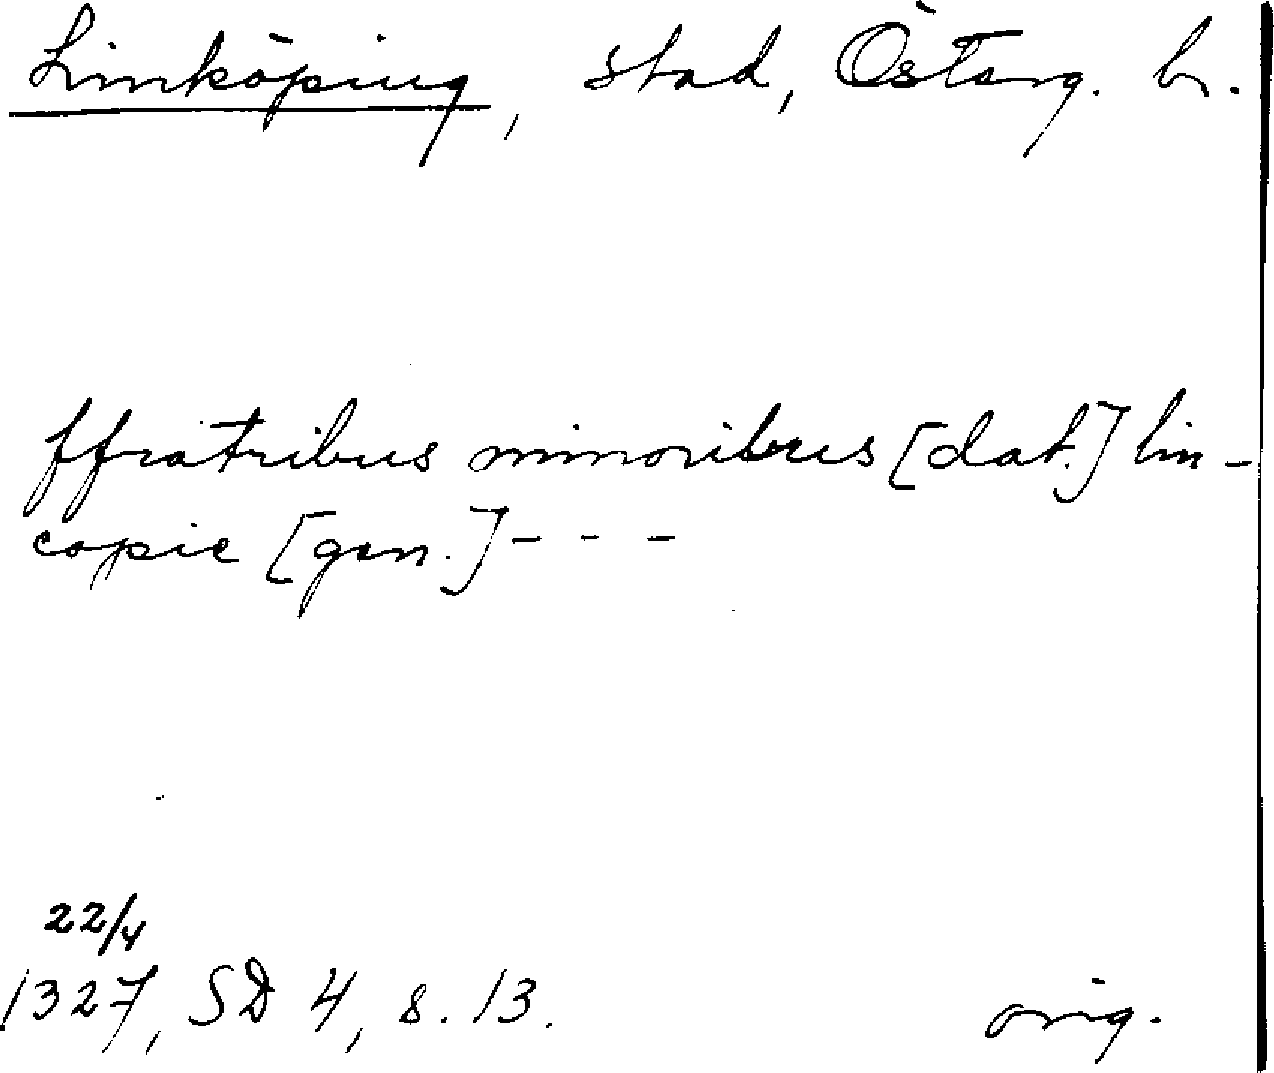 Linköping, stad, Östarg. l.
ffratribus minoribus [dat.] lin-
copie [gen.] - - -
22/4
1327, SD 4, s. 13.
orig.